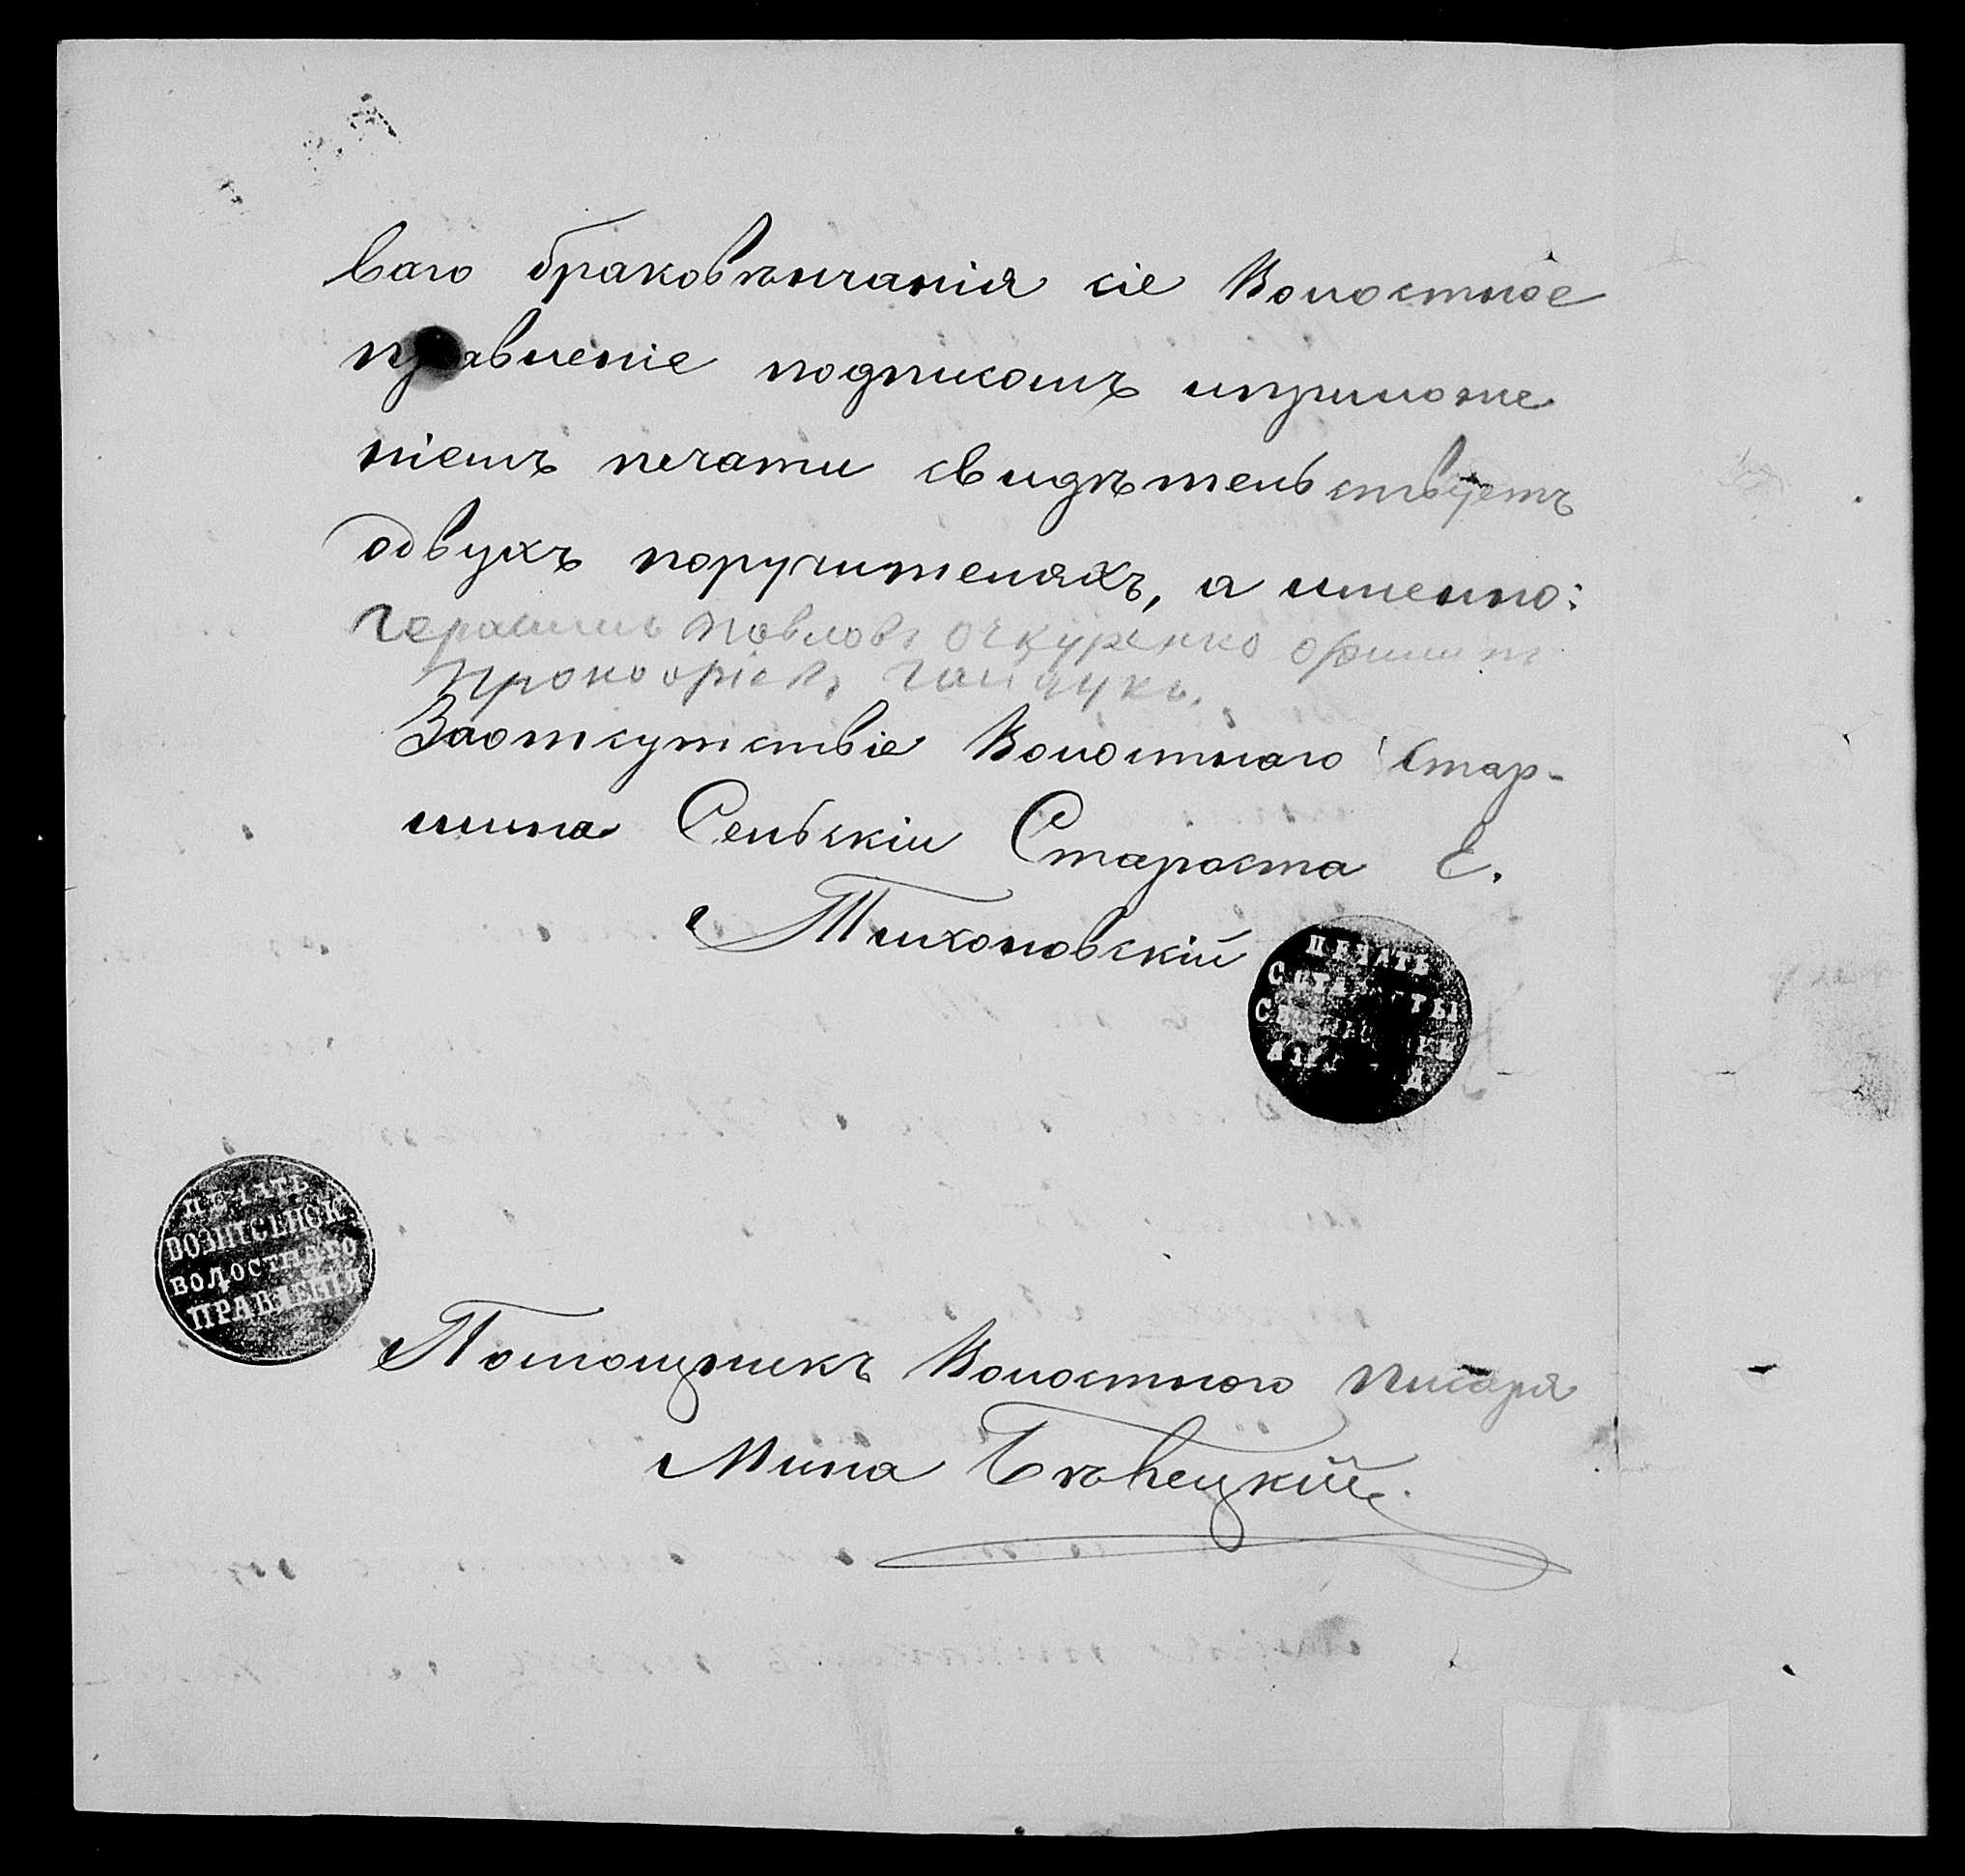 ваго браковѣнчанія сіе Волостное
правленіе подписомъ иприложе
ніемъ печати свидѣтельствуетъ
одвухъ поручителяхъ, а именно:
Герасимъ Павловъ Очкуренко
Прокофіевъ Гайдукъ.
Заотсутствіе Волостнаго Стар-
шина Сельскій Староста Е.
Тихоновскій
ПЕЧАТЬ
ПЕЧАТЬ
ВОЗНІСЕНСК.
ВОЛОСТНАГО
ПРАВЛЕНІЯ
Помощникъ Волостного Писаря
Мина Бѣлецкій.